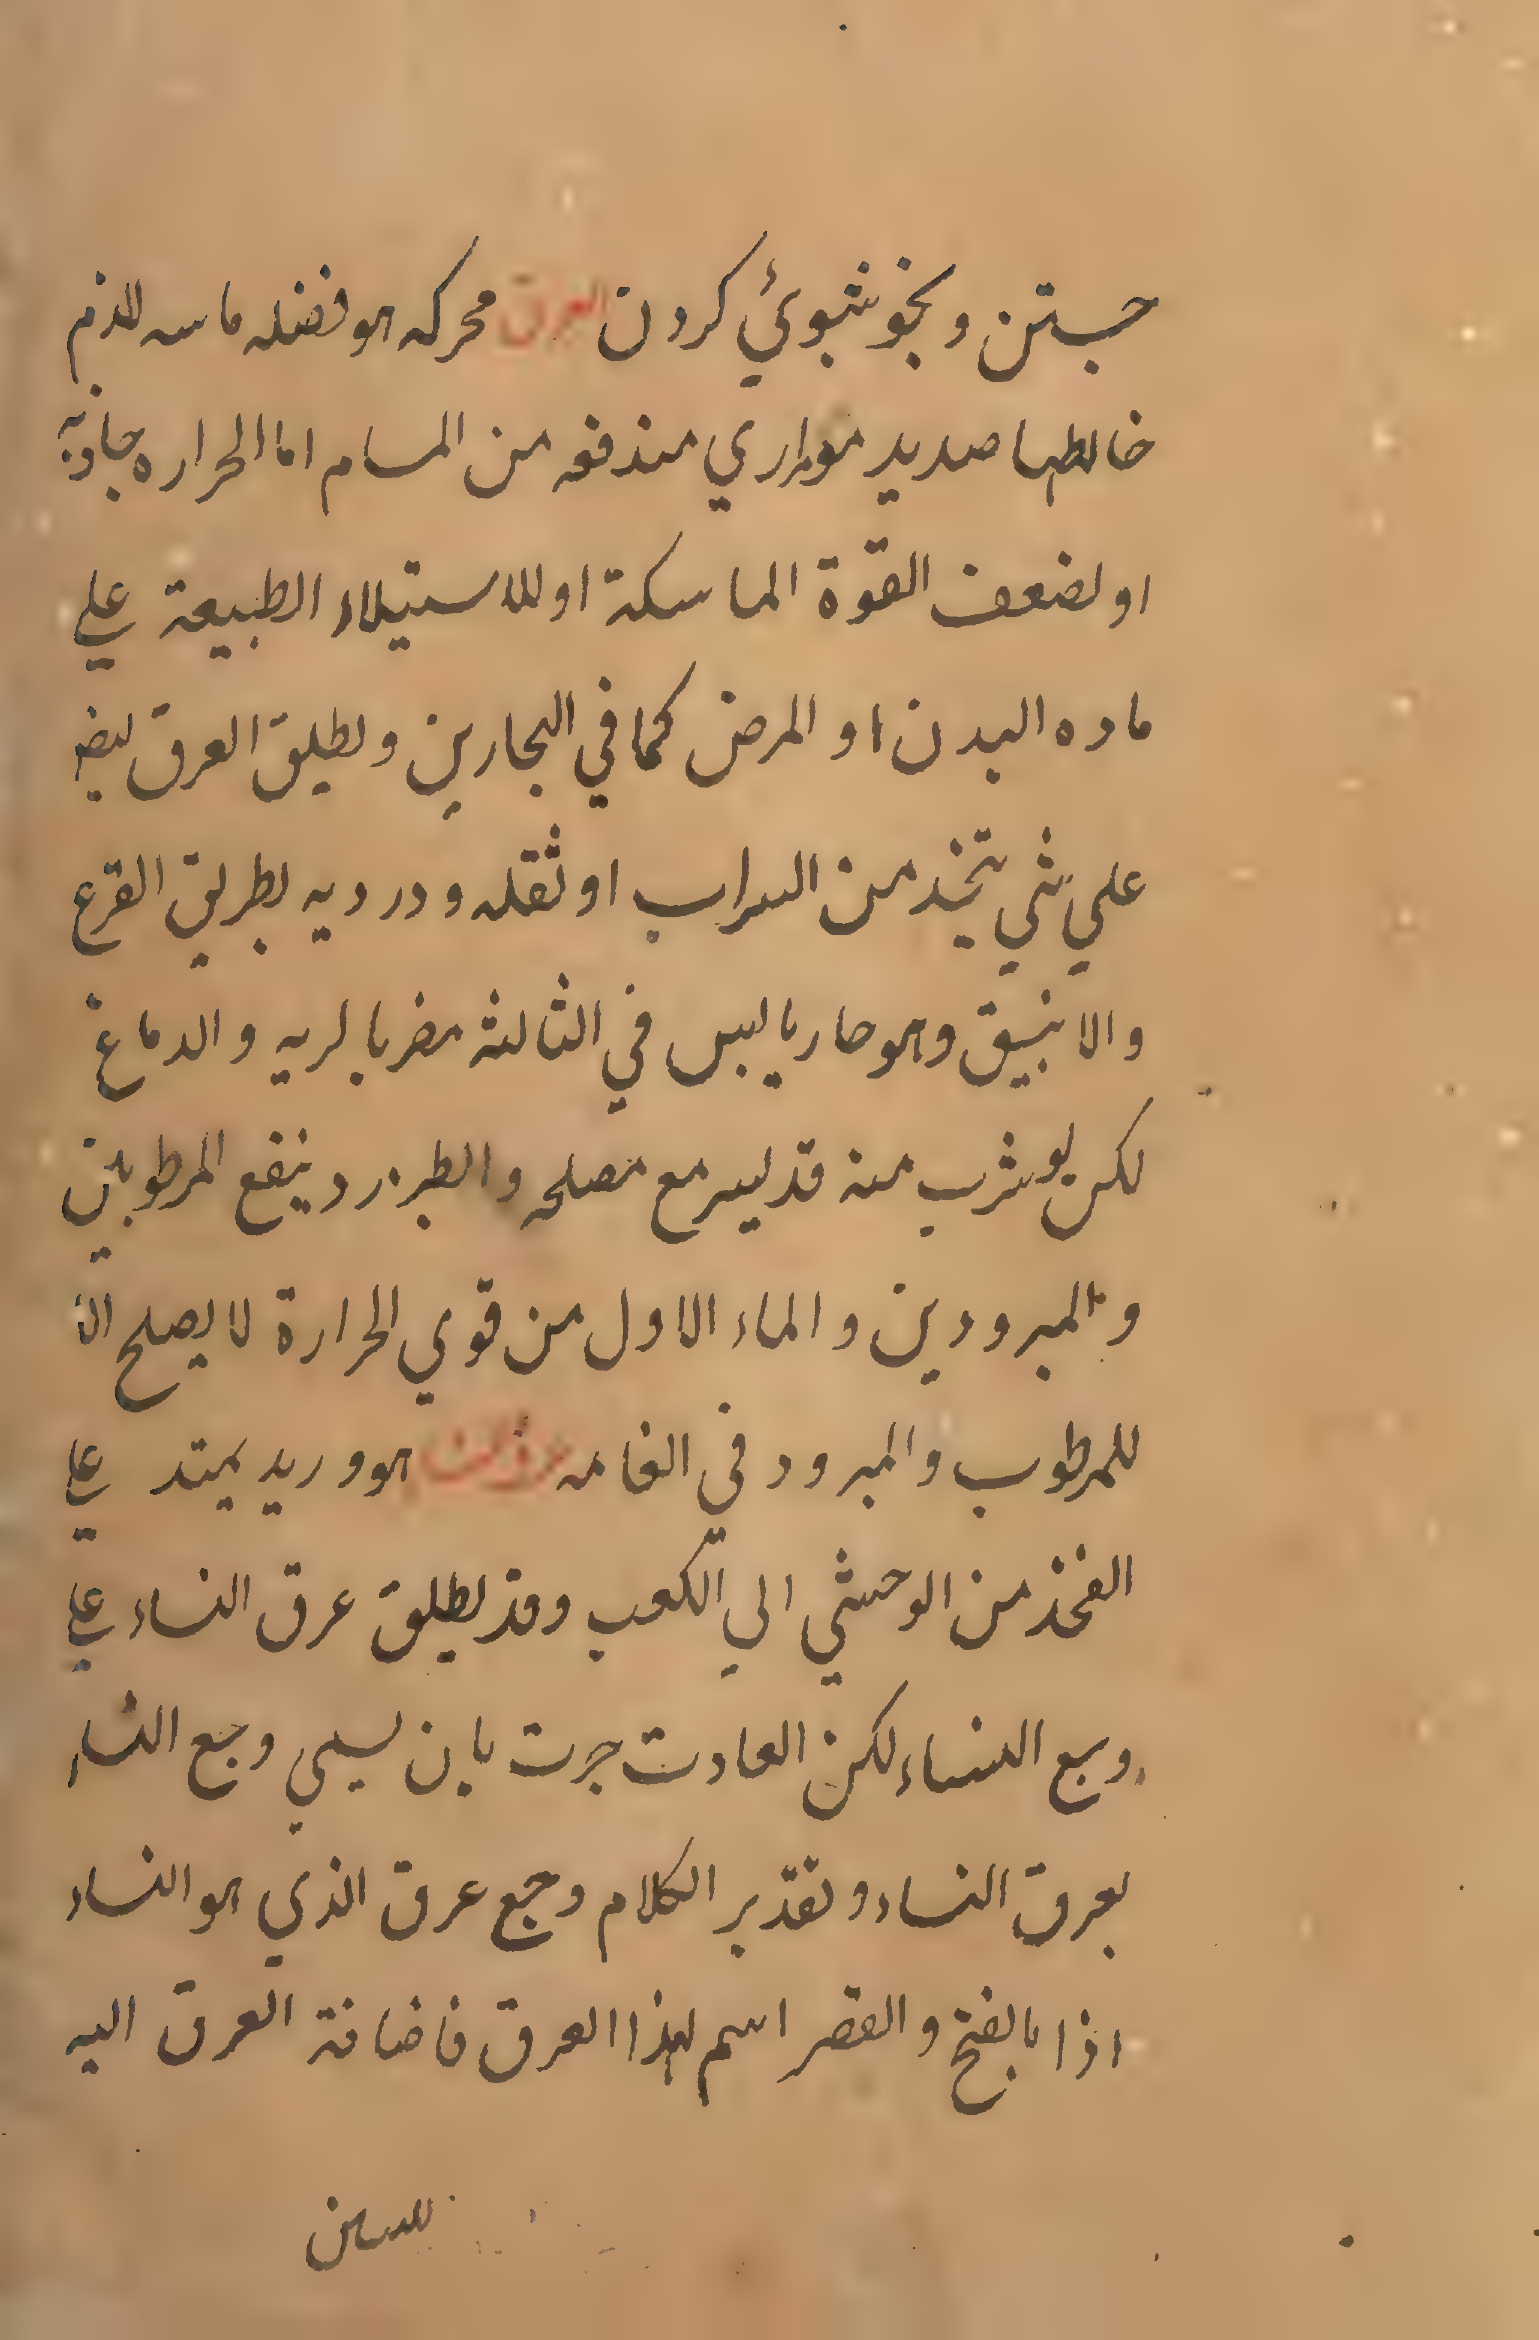 جستن و بخوشبوئي كردن العرق محركه هو فضله مائيه للدم
خالطها صديد مراري مندفعه من المسام اما الحراره جاذبه
او لضعف القوة الماسكة او للاستيلاء الطبيعة علي
ماده البدن او المرض كما في البحارين و يطلق العرق ايضا
علي شي يتخذ من الشراب او ثقله و درديه بطريق القرع
والانبيق وهو حار يابس في الثالثه مضر بالريه والدماغ
لكن لو شرب منه قد يسير مع مصلحه و الطبرزد ينفع المرطوبين
و المبرودين و الماء الاول من قوي الحرارة لا يصلح الا
للمرطوب والمبرود في الغايه عرق النسا هو وريد يمتد علي
الفخذ من الوحشي الي الكعب وقد يطلق عرق النساء علي
وجع النساء لكن العادت جرت بان يسمي وجع النساء
بعرق النساء و تقدير الكلام وجع عرق الذي هو النساء
اذا بالفتح و القصر اسم لهذا العرق فاضافة العرق اليه
للتبيين